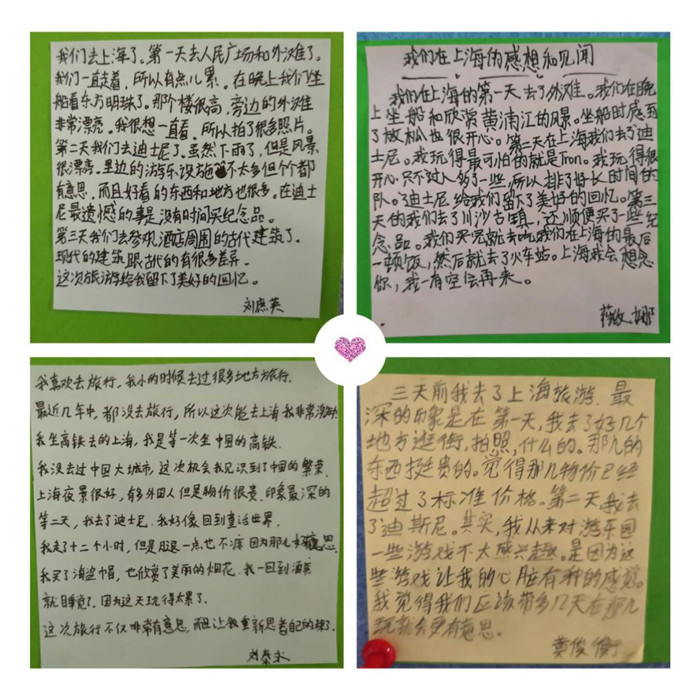 我们去上海了。第一天去人民广场和外滩了。
我们一直走着，所以有点儿累。在晚上我们坐
船看东方明珠了。那个楼很高，旁边的外滩
非常漂亮。我很想一直看，所以拍了很多照片。
第二天我们去迪士尼了。虽然下雨了，但是风景
很漂亮。里边的游乐设施不太多但个个都
有意思，而且好看的东西和地方也很多。在迪士
尼最遗憾的事是没有时间买纪念品。
第三天我们去参观酒店周围的古代建筑了。
现代的建筑跟古代的有很多差异。
这次旅游给我留下了美好的回忆。
刘庶英
我们在上海的感想和见闻
我们在上海的第一天去了外滩。我们在晚
上坐船和欣赏黄浦江的风景。坐船时感到
了放松也很开心。第二天在上海我们去了迪
士尼。我玩得最可怕的就是Tron。我玩得很
开心只不过人多了一些，所以排了好长时间的
队。迪士尼给我们留下了美好的回忆。第三
天的我们去了川沙古镇，还顺便买了一些纪
念品。我们买完就去吃我们在上海的最后
一顿饭，然后就去了火车站。上海我会想念
你，我一有空会再来。
我喜欢去旅行，我小的时候去过很多地方旅行。
最近几年中，都没去旅行，所以这次能去上海我非常激动
我坐高铁去的上海，我是第一次坐中国的高铁。
我没去过中国大城市，这次机会我见识到了中国的繁荣。
上海夜景很好，有多外国人但是物价很贵。印象最深的
第二天，我去了迪士尼。我好像回到童话世界。
我走了十二个小时，但是腿一点也不疼因为那儿好有意思
我买了海盗帽，也欣赏了美丽的烟花。我一回到酒店
就睡觉了，因为这天玩得太累了。
这次旅行不仅非常有意思，而且让我重新思考自己的
刘泰
三天前我去了上海旅游，最
深的印象是在第一天，我去了好几个
地方逛街，拍照，什么的。那儿的
东西挺贵的。觉得那儿物价已经
超过了标准价格。第二天我去
了迪斯尼。其实，我从来对游乐园
一些游戏不太感兴趣。是因为这
些游戏让我的心脏有种的感觉。
我觉得我们应该带多几天在那儿
玩就会更有意思。